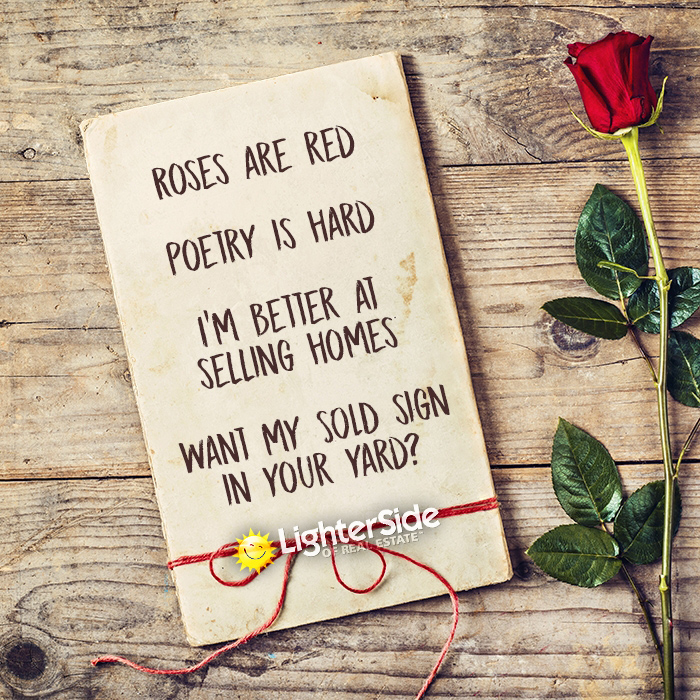 ROSES ARE RED
POETRY IS HARD
I'M BETTER AT
SELLING HOMES
WANT MY SOLD SIGN
IN YOUR YARD?
LighterSide
OF REAL ESTATE